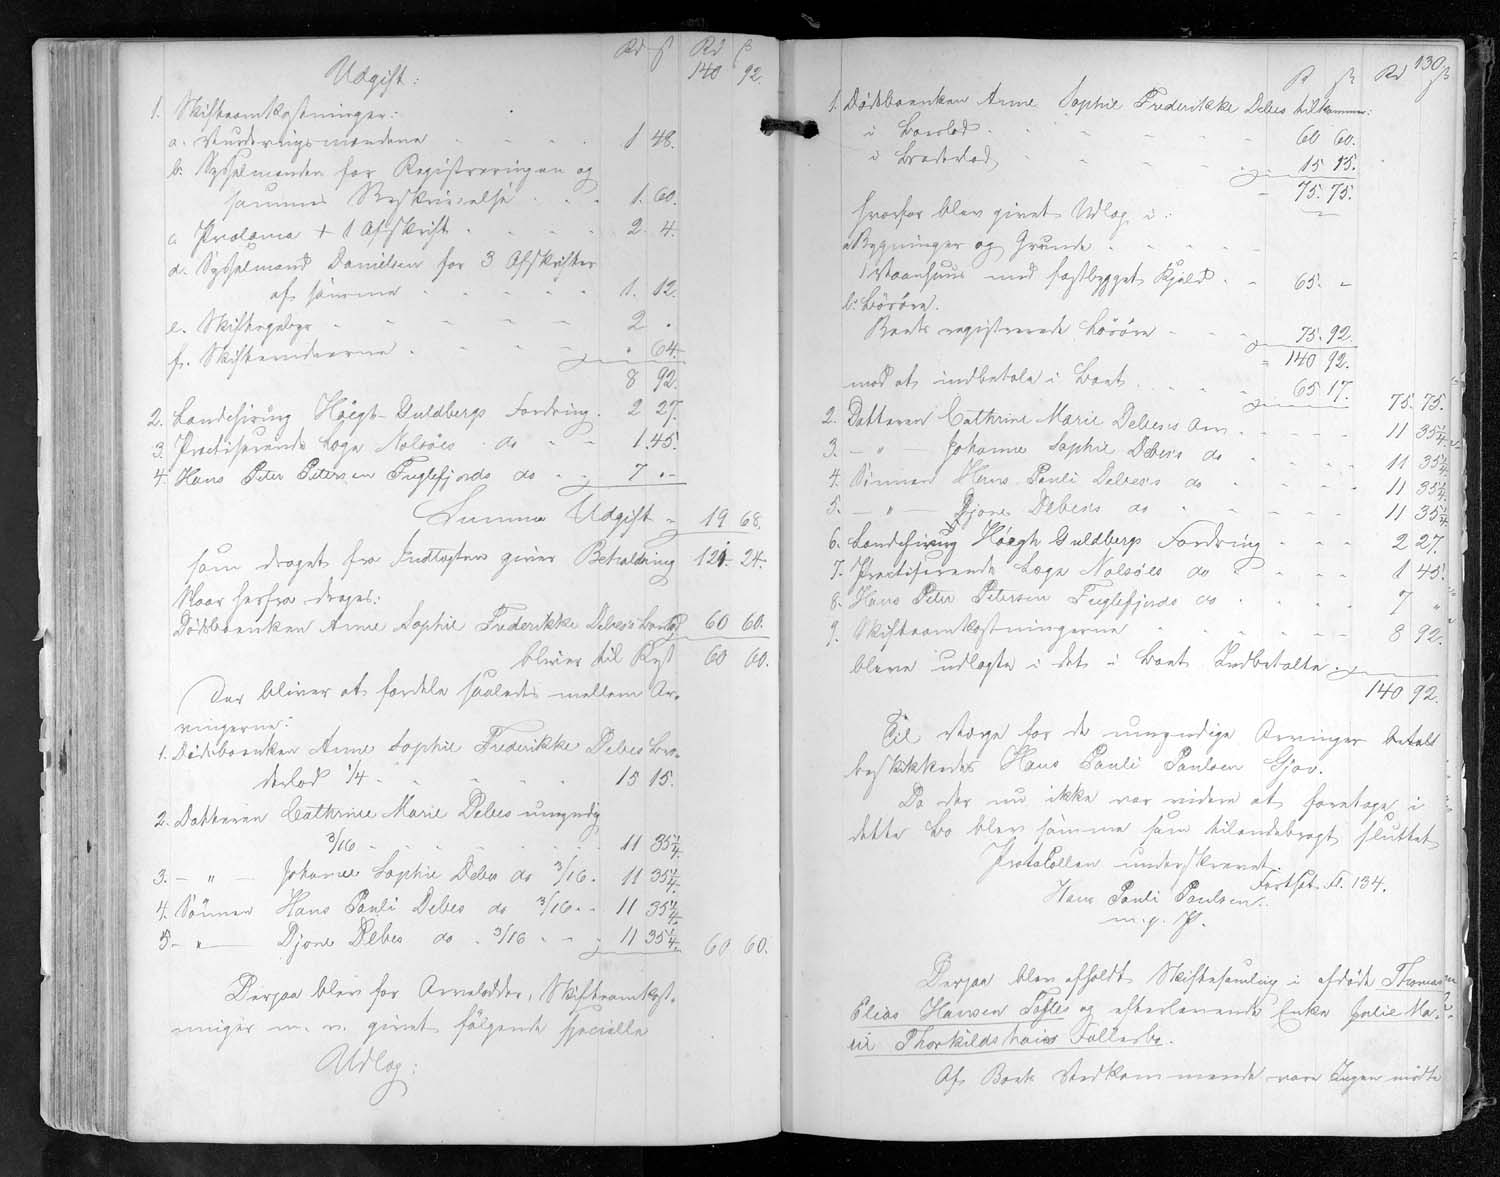 Rd ß Rd ß
Udgift: 140 92.
1. Skifteomkostninger:
a. Vurderingsmændene 1 48.
b. Sysselmanden for Registreringen og
sammes Beskrivelse 1. 60.
c. Proclama + 1 Afskrift 2 4.
d. Sysselmand Danielsen for 3 Afskrifter
af samme 1. 12.
e. Skiftegebyr 2 "
f. Skifteværdierne " 64
8 92.
2. Landchirurg Høegh-Guldbergs Fordring. 2 27.
3. Practiserende Læge Nolsöes do 1. 45.
4. Hans Peter Petersen Fuglefjords do 7 "
Summa Udgift 19 68.
som draget fra Indtægten giver Beholdning 121. 24.
Naar herfra drages:
Dødsboenken Anne Sophie Frederikke Debes's Boeslod 60 60.
bliver til Rest 60 60.
Der bliver at fordele saaledes mellem Ar-
vingerne:
1. Dødsboenken Anne Sophie Frederikke Debes Bro-
derlod 1/4 15 15.
2. Datteren Cathrine Marie Debes umyndig
3/16 11 35 1/4.
3. — " — Johanne Sophie Debes do 3/16. 11 35 1/4.
4. Sönnen Hans Pauli Debes do 3/16 11 35 1/4.
5 — " — Djone Debes do 3/16 11 35 1/4. 60 60.
Derpaa blev for Arvelodder, Skifteomkost-
ninger m. v. givet følgende specielle
Udlæg:
130
ß Rd ß
1. Dødsboenken Anne Sophie Frederikke Debes tilkommer:
i Boeslod 60 60.
i Broderlod 15 15.
75. 75.
hvorfor blev givet Udlæg i:
a. Bygninger og Grunde
1 Vaanhuus med fastbygget Kjeld 65. "
b. Løsøre.
Boets registrerede Løsøre 75. 92.
140 92.
mod at indbetale i Boet 65 17. 75. 75.
2. Datteren Cathrine Marie Debes's Arv 11 35 1/4.
3. — " — Johanne Sophie Debes's do 11 35 1/4
4. Sönnen Hans Pauli Debes's do 11 35 1/4
5. — " — Djone Debes's do 11 35 1/4
6. Landchirurg Høegh Guldbergs Fordring 2 27.
7. Practiserende Læge Nolsöes do 1 45.
8. Hans Peter Petersen Fuglefjords do 7 "
9. Skifteomkostningerne 8 92.
bleve udlagte i det i Boet Indbetalte.
140 92.
Til Værge for de umyndige Arvinger
beskikkedes Hans Pauli Poulsen Gjov.
Da der nu ikke var videre at foretage i
dette Bo blev samme som tilendebragt sluttet
Protokollen underskrevet.
Fortsat Fl. 134.
Hans Pauli Poulsen
m. p. P.
Derpaa blev afholdt Skiftesamling i afdøde Thomas
Elias Hansen Tofles og efterlevende Enke Julie Ma-
rie Thorkildshøis Fallesbo.
Af Boets Vedkommende vare Ingen mødte